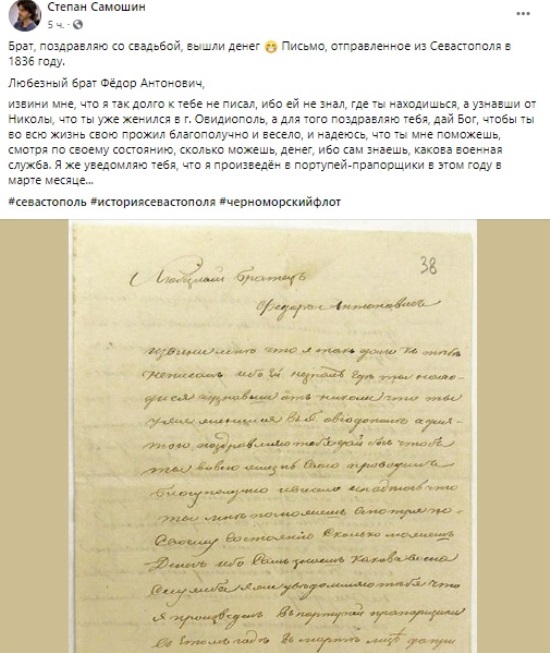 Степан Самошин
5 ч. ·
Брат, поздравляю со свадьбой, вышли денег 😁 Письмо, отправленное из Севастополя в
1836 году.
Любезный брат Фёдор Антонович,
извини мне, что я так долго к тебе не писал, ибо ей не знал, где ты находишься, а узнавши от
Николы, что ты уже женился в г. Овидиополь, а для того поздравляю тебя, дай Бог, чтобы ты
во всю жизнь свою прожил благополучно и весело, и надеюсь, что ты мне поможешь,
смотря по своему состоянию, сколько можешь, денег, ибо сам знаешь, какова военная
служба. Я же уведомляю тебя, что я произведён в портупей-прапорщики в этом году в
марте месяце...
#севастополь #историясевастополя #черноморскийфлот
38
братецъ
Федоръ Антоновичь
извини мнѣ что я такъ долго къ тебѣ
неписалъ ибо ей незналъ где ты нахо-
дися аузнавши отъ николы что ты
тово поздравляю тебя дай богъ чтобъ
ты вовсю жизнь свою
благополучно ивесело инадеюсь что
ты мнѣ поможешь смотря по-
своему состоянию сколько можешь
денегъ ибо самъ знаешь какова воена
служба я же уведомляю тебя что
я произведенъ въ портупей прапорщики